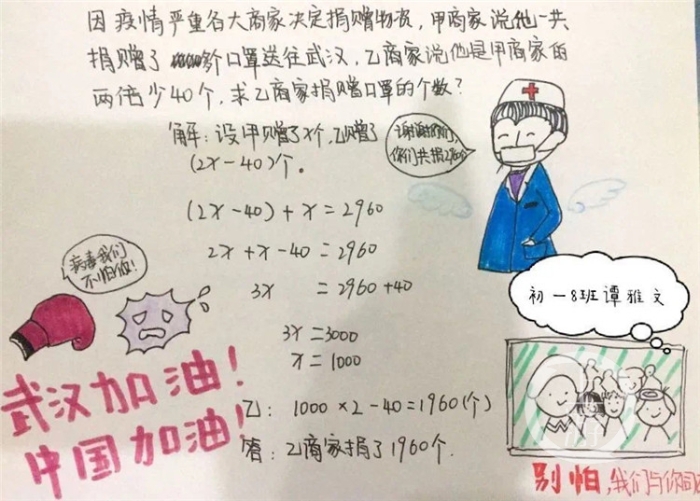 因疫情严重各大商家决定捐赠物资,甲商家说他一共
捐赠了 个口罩送往武汉,乙商家说他是甲商家的
两倍少40个,求乙商家捐赠口罩的个数?
解:设甲赠了x个,乙赠了
(2x-40)个。
谢谢你们,
你们共捐2960个
(2x-40)+x=2960
2x+x-40=2960
3x =2960+40
3x=3000
x=1000
乙:1000×2-40=1960(个)
答:乙商家捐了1960个.
病毒我们
不怕你!
武汉加油!
中国加油!
初一8班谭雅文
别怕,我们与你同